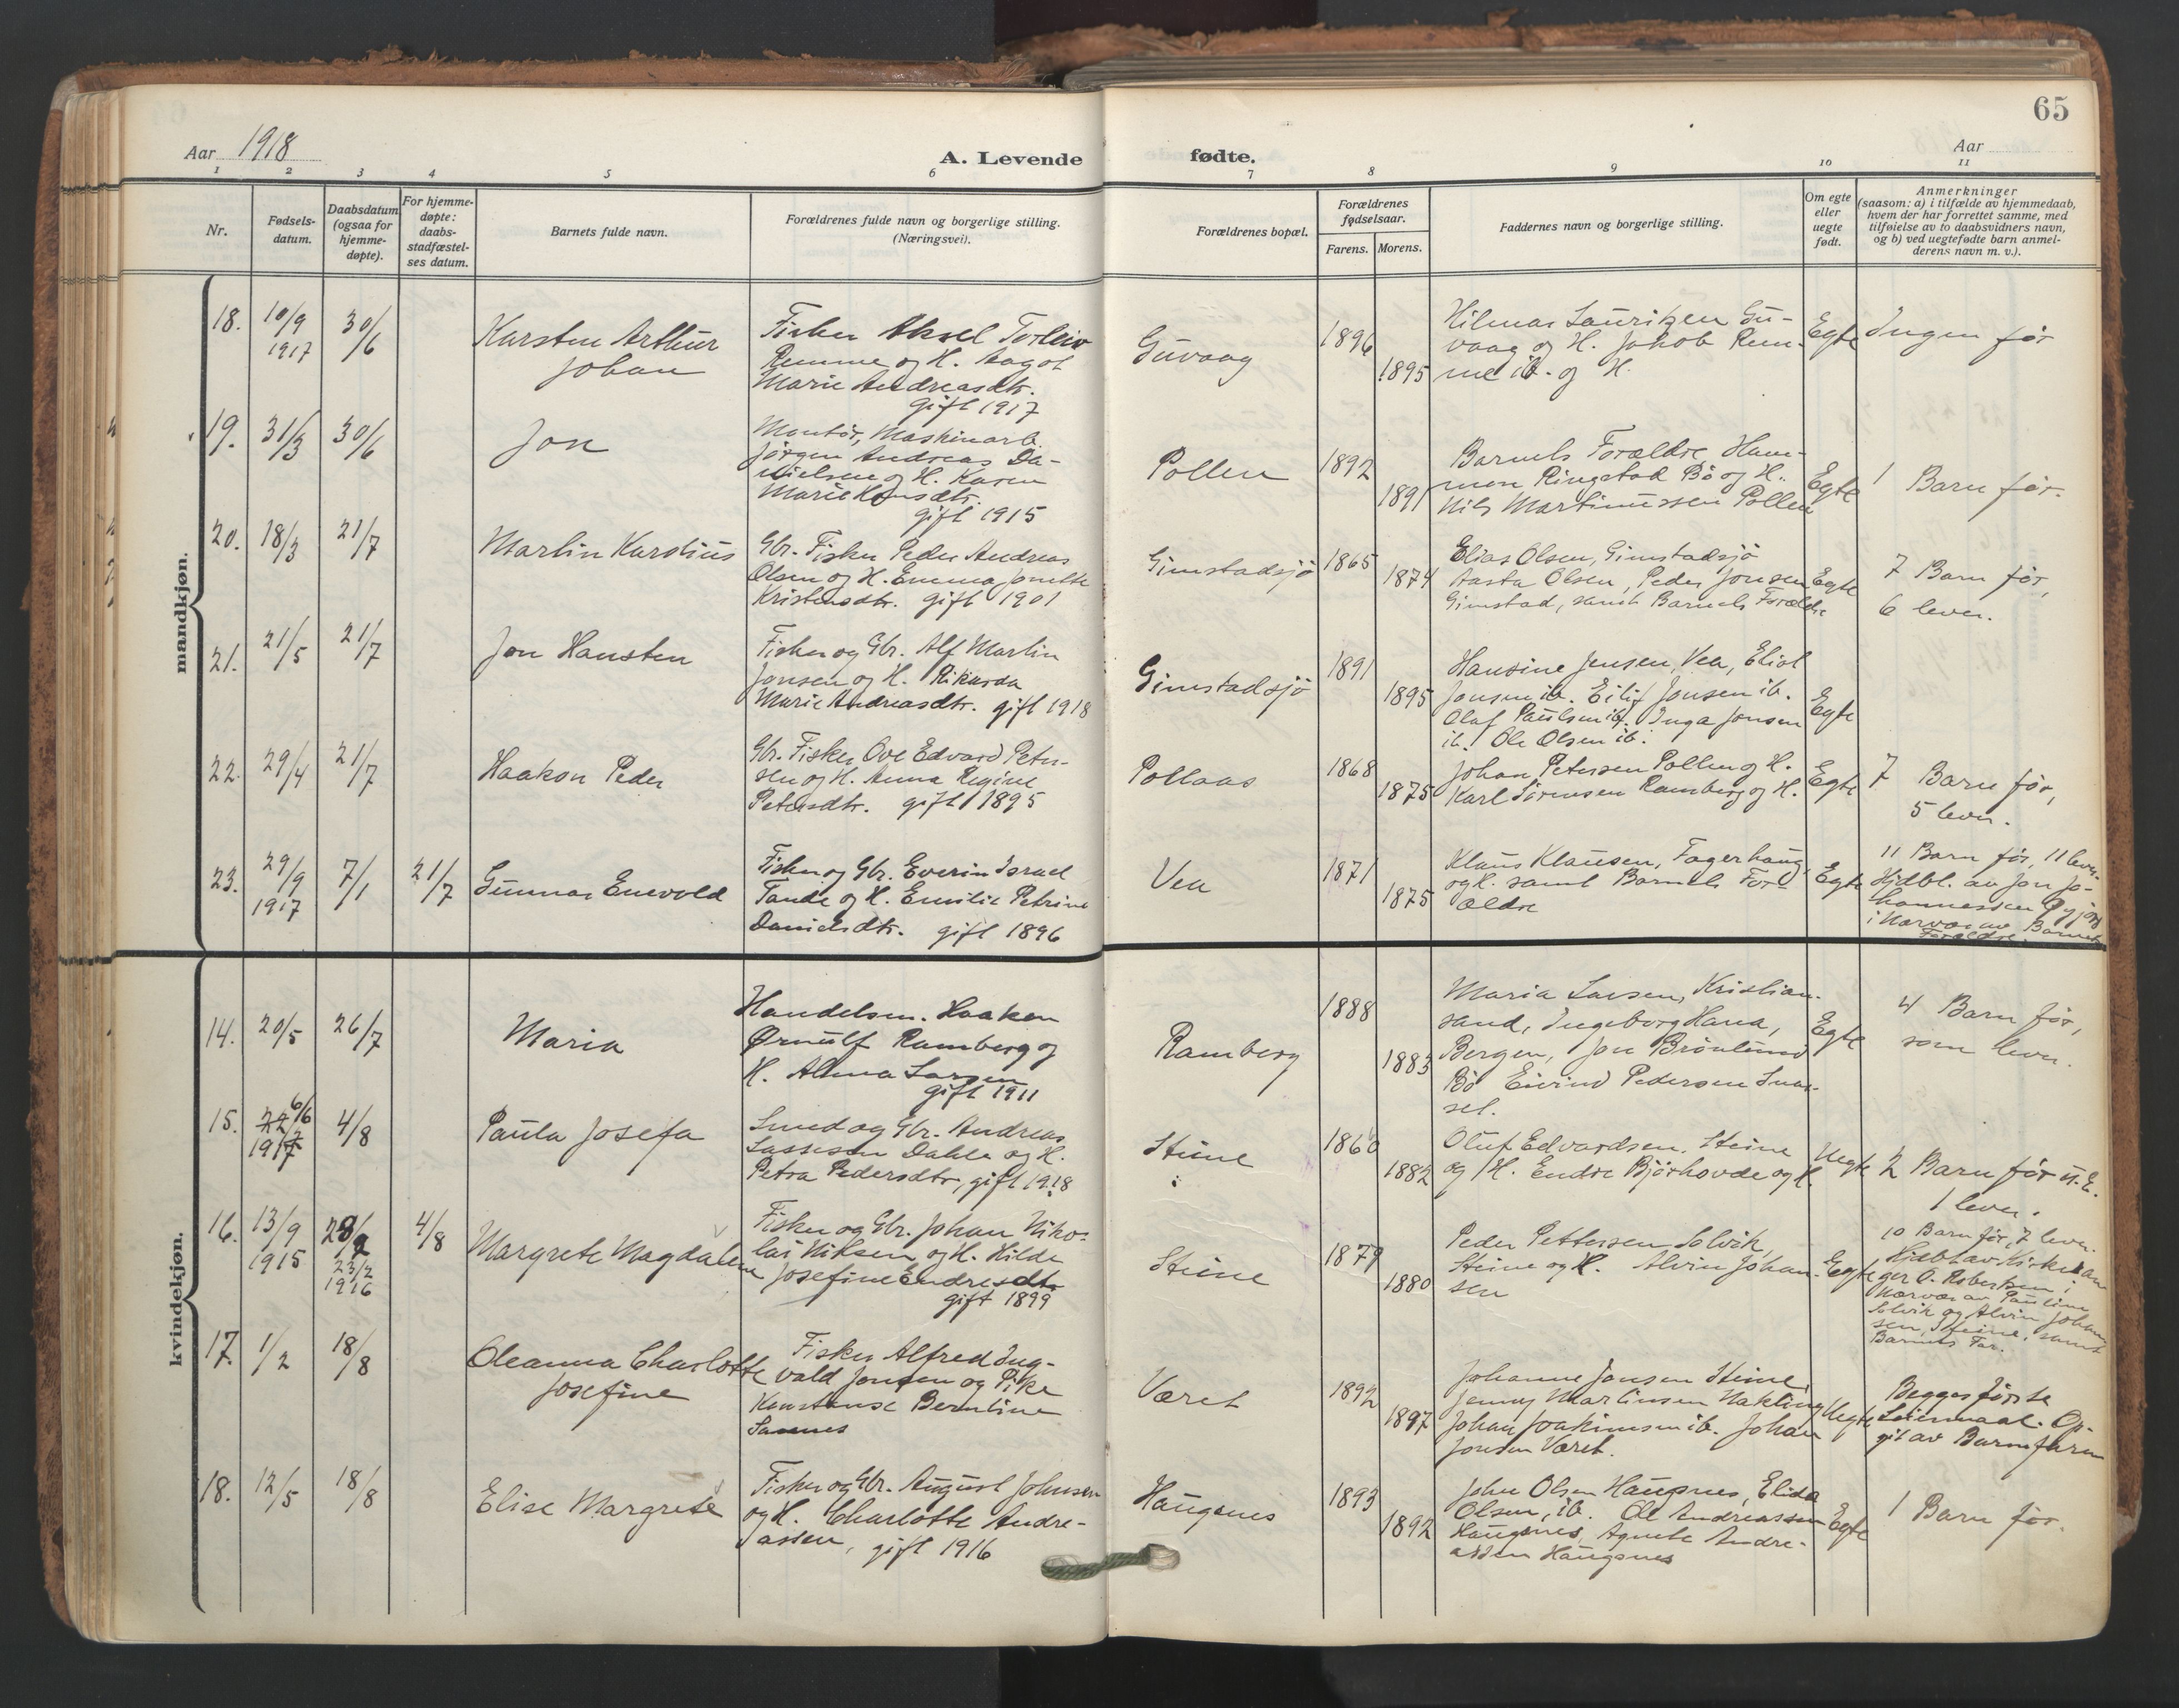 65
Aar 1918
A. Levende
fødte.
Aar
1 2 3 4 5 6 7 8 9 10 11
Nr.
Fødsels-
datum.
Daabsdatum
(ogsaa for
hjemme-
døpte).
For hjemme-
døpte:
daabs-
stadfæstel-
ses datum.
Barnets fulde navn.
Forældrenes fulde navn og borgerlige stilling.
(Næringsvei).
Forældrenes bopæl.
Forældrenes
fødselsaar.
Farens. Morens.
Faddernes navn og borgerlige stilling.
Om egte
eller
uegte
født.
Anmerkninger
(saasom: a) i tilfælde av hjemmedaab,
hvem der har forrettet samme, med
tilføielse av to daabsvidners navn,
og b) ved uegtefødte barn anmel-
derens navn m. v.).
mandkjøn.
18.
10/9
1917
30/6
Karsten Arthur
Johan
Fisker Aksel Torleiv
Remme og H. Aagot
Marie Andreasdtr.
gift 1917
Guvaag
1896
1895
Hilmar Lauritzen Gu-
vaag og H. Jakob Rem-
me ib. og H.
Egte
Ingen før
19.
31/3
30/6
Jon
Montør, Maskinarb.
Jørgen Andreas Da-
nielsen og H. Karen
Marie
gift 1915
Pollen
1892
1891
Barnets Forældre, Ham-
mon Ringstad Bø og H.
Nils Martinussen Pollen
Egte
1 Barn før.
20.
18/3
21/7
Martin Karolius
Gbr. Fisker Peder Andreas
Olsen og H. Emma
Kristensdtr. gift 1901
Gimstadsjø
1865
1874
Elias Olsen, Gimstadsjø
Aasta Olsen, Peder Jonsen
Gimstad, samt Barnets Forældre
Egte
7 Barn før,
6 lever.
21.
21/5
21/7
Jon Hansten
Fisker og Gbr. Alf Martin
Jonsen og H. Rikarda
Marie Andreasdtr. gift 1918
Gimstadsjø
1891
1895
Hansine Jensen, Vea, Eliot
Jonsen ib. Eilif Jonsen ib.
Olaf Paulsen ib. Inga Jonsen
ib. Ole Olsen ib.
Egte
22.
29/4
21/7
Haakon Peder
Gbr. Fisker Ove Edvard Peter-
sen og H. Anna Regine
Petersdtr. gift 1895
Pollaas
1868
1875
Johan Petersen Pollen og H.
Karl Sørensen Ramberg og H.
Egte
7 Barn før,
5 lever.
23.
29/9
1917
7/1
21/7
Gunnar Enevold
Fisker og Gbr. Everin Israel
Tande og H. Emilie Petrine
Danielsdtr. gift 1896
Vea
1871
1875
Klaus Klausen, Fagerhaug,
og H. samt Barnets For-
ældre
Egte
11 Barn før, 11 lever.
Hjdbt. av Jon Jo-
hannessen
i Nærvær av Barnets
Forældre.
kvindekjøn.
14.
20/5
26/7
Maria
Handelsm. Haakon
Ørnulf Ramberg og
H. Alma Larsen
gift 1911
Ramberg
1888
1883
Maria Larsen, Kristian-
sand, Ingeborg Hana,
Bergen, Jon Brønlund
Bø Eivind Pedersen
Egte
4 Barn før,
som lever.
15.
6/6
1917
4/8
Paula Josefa
Smed og Gbr. Andreas
Lassesen Dahle og H.
Petra Pedersdtr, gift 1918
Steine
1860
1882
Oluf Edvardsen, Steine
og H. Endre Bjørhovde og H.
Uegte
2 Barn før u. E.
1 lever.
16.
13/9
1915
23/2
1916
4/8
Margrete Magdalene
Fisker og Gbr. Johan Niko-
lai Nilsen og H. Hilda
Josefine Endresdtr
gift 1899
Steine
1879
1880
Peder Pettersen Solvik,
Steine og H. Alvin Johan-
sen
Egte
10 Barn før, 7 lever.
Hjdbt av Kirkesan-
ger O. Robertsen i
Nærvær av Pauline
Solvik og Alvin Johan-
sen, Steine, samt
Barnets Far.
17.
1/2
18/8
Oleanna Charlotte
Josefine
Fisker Alfred Ing-
vald Jonsen og Pike
Konstanse Berntine
Sannes
Været
1892
1897
Johanne Jonsen Steine,
Jenny Martinsen Nakling
Johan Joakimsen ib. Johan
Jonsen Været.
Uegte
Begges første
Leiermaal. Op-
git av Barnefaren
18.
12/5
18/8
Elise Margrete
Fisker og Gbr. August Johnsen
og H. Charlotte Andre-
assen, gift 1916
Haugsnes
1893
1892
John Olsen Haugsnes, Elida
Olsen, ib. Ole Andreassen
Haugsnes, Agnete Andre-
assen Haugsnes
Egte
1 Barn før.